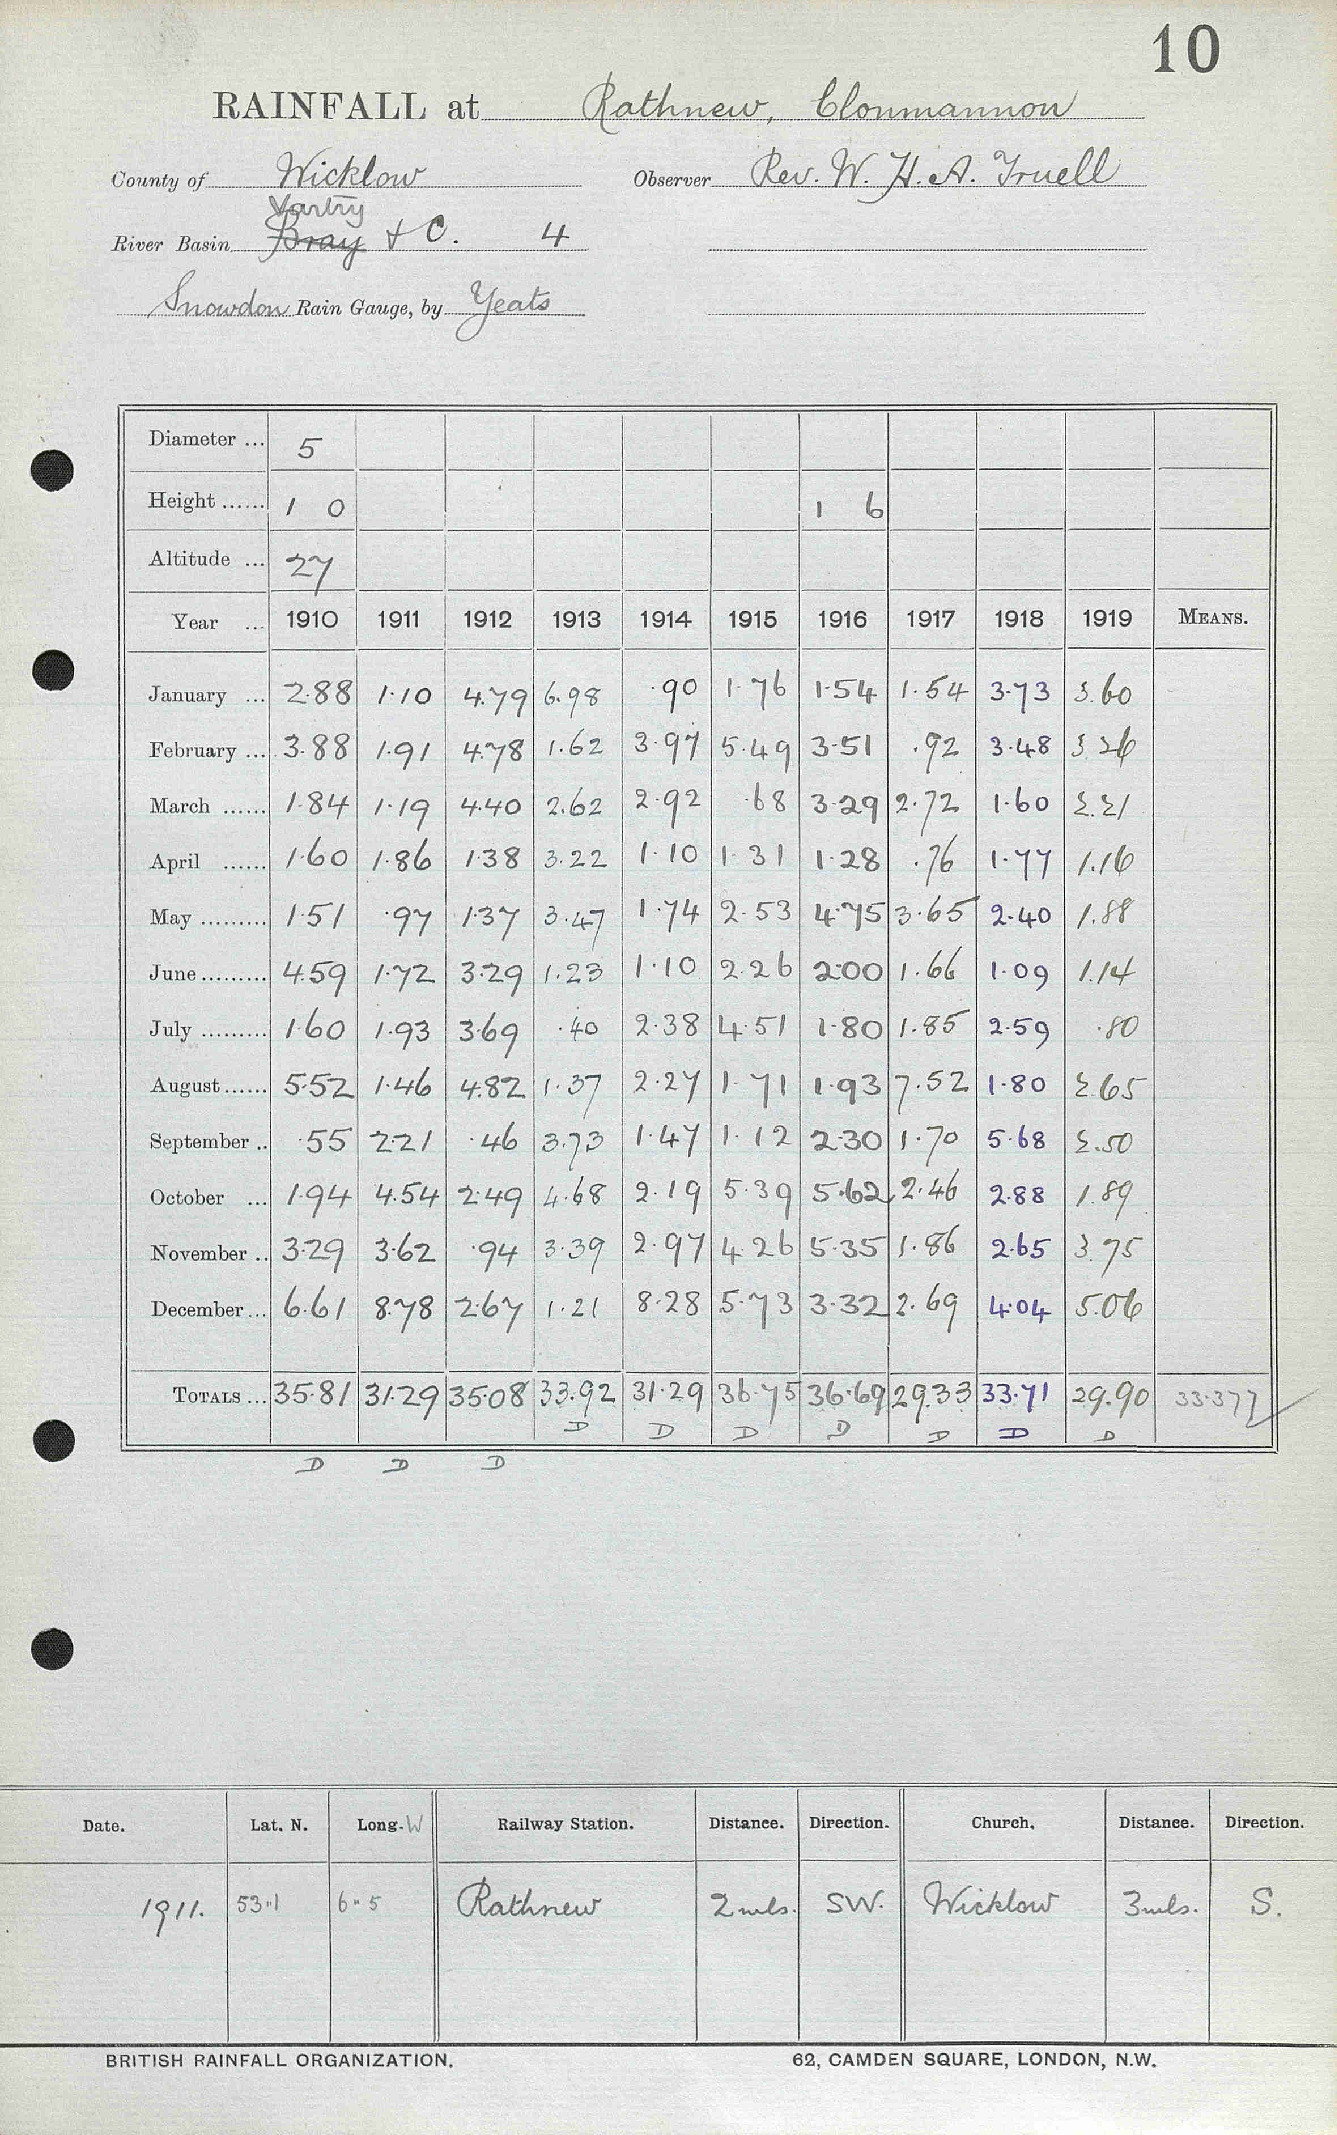 10
RAINFALL at Rathnew, Clonmannon
County of Wicklow Observer Rev. W. H. A. Truell
Vartry
River Basin Bray + C. 4
Snowdon Rain Gauge, by Yeats
Diameter ... 5
Height ...... 1 0 1 6
Altitude ... 27
Year ... 1910 1911 1912 1913 1914 1915 1916 1917 1918 1919 MEANS.
January ... 2.88 1.10 4.79 6.98 .90 1.76 1.54 1.54 3.73 3.60
February ... 3.88 1.91 4.78 1.62 3.97 5.49 3.51 .92 3.48 3.26
March ...... 1.84 1.19 4.40 2.62 2.92 .68 3.29 2.72 1.60 2.21
April ...... 1.60 1.86 1.38 3.22 1.10 1.31 1.28 .76 1.77 1.16
May ......... 1.51 .97 1.37 3.47 1.74 2.53 4.75 3.65 2.40 1.88
June ......... 4.59 1.72 3.29 1.23 1.10 2.26 2.00 1.66 1.09 1.14
July ......... 1.60 1.93 3.69 .40 2.38 4.51 1.80 1.85 2.59 .80
August ...... 5.52 1.46 4.82 1.37 2.27 1.71 1.93 7.52 1.80 2.65
September .. .55 2.21 .46 3.73 1.47 1.12 2.30 1.70 5.68 2.50
October ... 1.94 4.54 2.49 4.68 2.19 5.39 5.62 2.46 2.88 1.89
November .. 3.29 3.62 .94 3.39 2.97 4.26 5.35 1.86 2.65 3.75
December ... 6.61 8.78 2.67 1.21 8.28 5.73 3.32 2.69 4.04 5.06
TOTALS ... 35.81 31.29 35.08 33.92 31.29 36.75 36.69 29.33 33.71 29.90 33.377
D D D D D D D
D D D
Date. Lat. N. Long. W Railway Station. Distance. Direction. Church. Distance. Direction.
1911. 53°1 6°5 Rathnew 2 mls. SW. Wicklow 3 mls. S.
BRITISH RAINFALL ORGANIZATION. 62, CAMDEN SQUARE, LONDON, N.W.